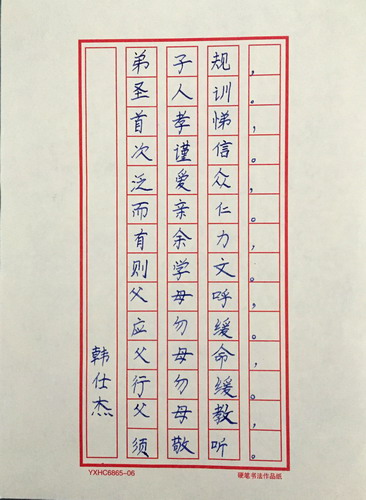 弟子规，
圣人训。
首孝悌，
次谨信。
泛爱众，
而亲仁。
有余力，
则学文。
父母呼，
应勿缓。
父母命，
行勿缓。
父母教，
须敬听。
韩仕杰
YXHC6865-06
硬笔书法作品纸